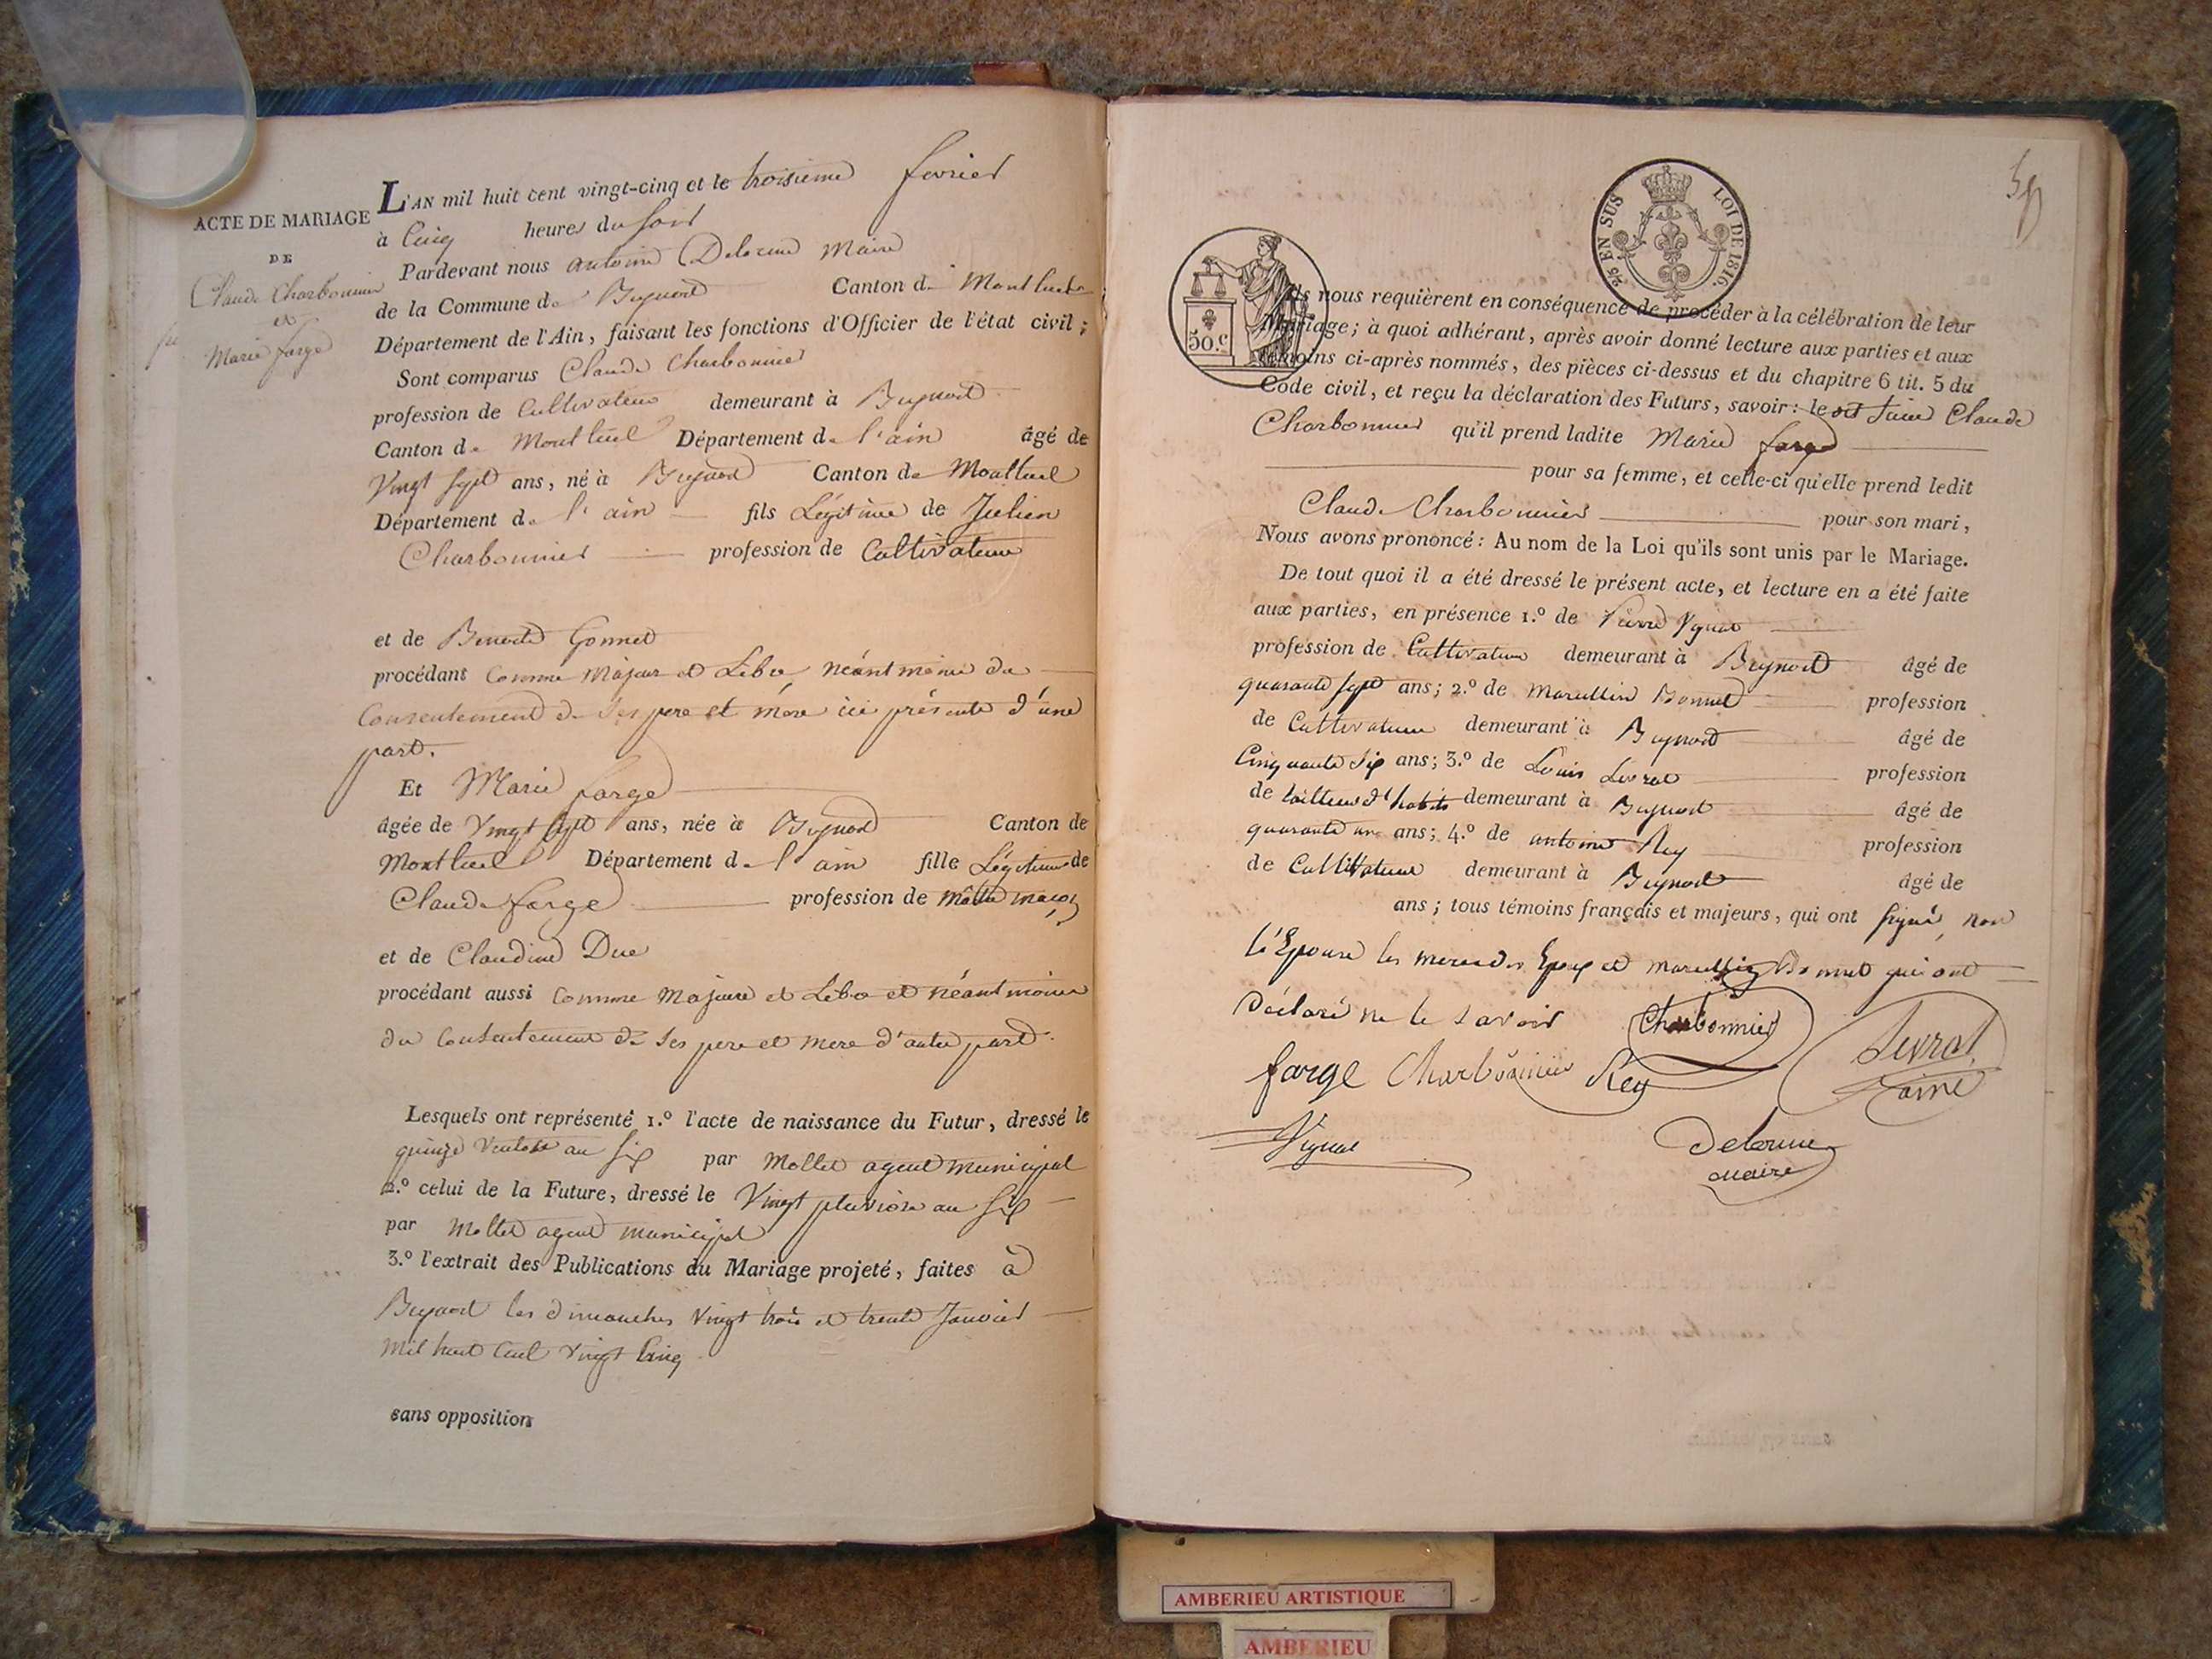 ACTE DE MARIAGE
DE
Claude Charbonnier
et
Marie farge
L'AN mil huit cent vingt-cinq et le troisieme fevrier
à Cinq heures du Soir
Pardevant nous antoine Delorme Maire
de la Commune de Beynost Canton de Montluel
Département de l'Ain, faisant les fonctions d'Officier de l'état civil ;
Sont comparus Claude Charbonnier
profession de Cultivateur demeurant à Beynost
Canton de Montluel Département de l'ain âgé de
Vingt Sept ans, né à Beynost Canton de Montluel
Département de l'ain fils Légitime de Julien
Charbonnier profession de Cultivateur
et de Benoite Gonnet
procédant Comme Majeur et Libre, néantmoins du
Consentement de Ses pere et mere ici présents d'une
part.
Et Marie farge
âgée de Vingt Sept ans, née à Beynost Canton de
Montluel Département de l'ain fille Légitime de
Claude farge profession de Maitre maçon
et de Claudine Due
procédant aussi Comme Majeure et Libre et néantmoins
du Consentement de Ses pere et mere d'autre part.
Lesquels ont représenté 1.º l'acte de naissance du Futur, dressé le
quinze Ventose an Six par Mollet agent municipal
2.º celui de la Future, dressé le Vingt pluviose an Six
par Mollet agent municipal
3.º l'extrait des Publications du Mariage projeté, faites à
Beynost les dimanches Vingt trois et trente Janvier
Mil huit Cent Vingt Cinq
sans opposition
2/5 EN SUS LOI DE 1816.
50.c
Ils nous requièrent en conséquence de procéder à la célébration de leur
Mariage ; à quoi adhérant, après avoir donné lecture aux parties et aux
témoins ci-après nommés, des pièces ci-dessus et du chapitre 6 tit. 5 du
Code civil, et reçu la déclaration des Futurs, savoir : le dit Sieur Claude
Charbonnier qu'il prend ladite Marie farge
pour sa femme, et celle-ci qu'elle prend ledit
Claude Charbonnier pour son mari,
Nous avons prononcé : Au nom de la Loi qu'ils sont unis par le Mariage.
De tout quoi il a été dressé le présent acte, et lecture en a été faite
aux parties, en présence 1.º de Pierre Vignat
profession de Cultivateur demeurant à Beynost âgé de
quarante Sept ans ; 2.º de Marcellin Bonnet profession
de Cultivateur demeurant à Beynost âgé de
Cinquante Six ans ; 3.º de Louis Levrat profession
de tailleur d'habits demeurant à Beynost âgé de
quarante un ans ; 4.º de antoine Rey profession
de Cultivateur demeurant à Beynost âgé de
ans ; tous témoins français et majeurs, qui ont Signé, non
l'Epouse les meres des Epoux et Marcellin Bonnet qui ont
Déclaré ne le Savoir Charbonnier
farge Charbonnier Rey Levrat
ainé
Vignat Delorme
Maire
AMBERIEU ARTISTIQUE
AMBERIEU